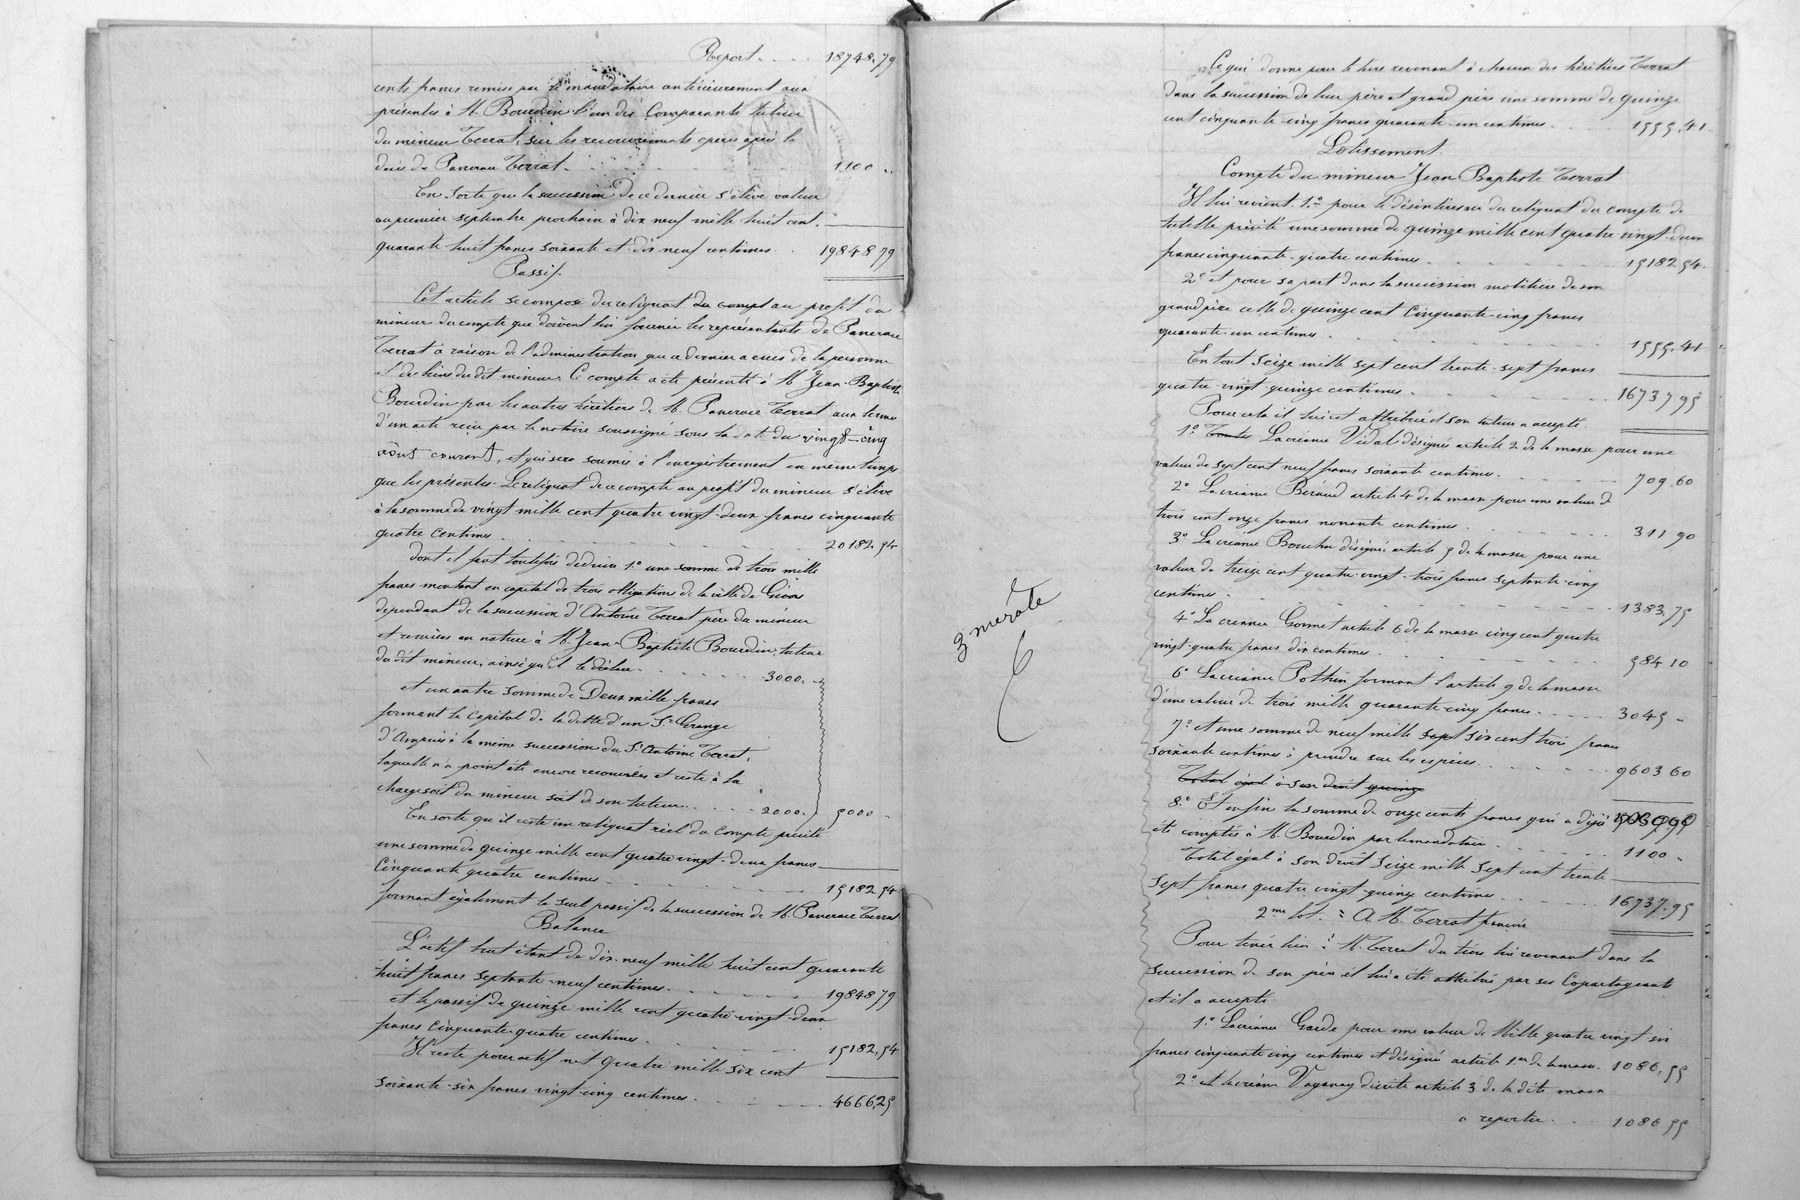 Report . . . . 18748.79
cents francs remise par le mandataire antérieurement aux
présentes à M. Bourdin l'un des Comparants tuteur
du mineur Terrat, sur les recouvrements opérés après le
décès de Pancrace Terrat . . . . 1100 "
En sorte que la succession de ce dernier s'élève valeur
au premier septembre prochain à dix neuf mille huit cent
quarante huit francs soixante et dix neuf centimes . . 19848 79
Passif.
Cet article se compose du reliquat du compt au profit du
mineur du compte que doivent lui fournir les représentants de Pancrace
Terrat à raison de l'administration que ce dernier a eues de la personne
et des biens du dit mineur. Ce compte a été présenté à M. Jean-Baptiste
Bourdin par les autres héritiers de M. Pancrace Terrat aux termes
d'un acte reçu par le notaire soussigné sous la date du vingt-cinq
août courant, et qui sera soumis à l'enregistrement en même temps
que les présentes. Le reliquat de ce compte au profit du mineur s'élève
à la somme de vingt mille cent quatre vingt-deux francs cinquante
quatre centimes . . . . 20182.54
dont il faut toutefois déduire 1.° une somme de trois mille
francs montant en capital de trois obligations de la ville de Givors
dépendant de la succession d'Antoine Terrat père du mineur
et remises en nature à M. Jean-Baptiste Bourdin, tuteur
du dit mineur, ainsi qu'il le déclare . . . . 3000. "
et un autre somme de Deux mille francs
formant le capital de la dette d'un Sr Grange
d'Ampuis à la même succession du Sr Antoine Terrat,
laquelle n'a point été encore recouvrées et reste à la
charge soit du mineur soit de son tuteur . . . . 2000. " 5000 "
En sorte que il reste un reliquat réel du Compte précité
une somme de quinze mille cent quatre vingt-deux francs
Cinquante quatre centimes . . . . 15182 54
formant également le seul passif de la succession de M. Pancrace Terrat
Balance
L'actif brut étant de dix-neuf mille huit cent quarante
huit francs septante-neuf centimes . . . . 19848 79
et le passif de quinze mille cent quatre-vingt-deux
francs Cinquante-quatre centimes . . . . 15182.54
Il reste pour actif net quatre mille six cent
soixante-six francs vingt-cinq centimes . . . . 4666,25
Ce qui donne pour le tiers revenant à chacun des héritiers Terrat
dans la succession de leur père et grand père une somme de quinze
cent cinquante-cinq francs quarante-un centimes . . . . 1555.41.
Lotissement.
Compte du mineur Jean Baptiste Terrat
Il lui revient 1.° pour le désintéresser du reliquat du compte de
tutelle précité une somme de quinze mille cent quatre vingt-deux
francs cinquante-quatre centimes . . . . 15182 54.
2.° et pour sa part dans la succession mobilière de son
grand père celle de quinze cent Cinquante-cinq francs
quarante-un centimes . . . . 1555.41
En tout Seize mille sept cent trente-sept francs
quatre-vingt-quinze centimes . . . . 16737 95
Pour cela il lui est attribué et son tuteur a accepté
1.° Toutes La créance Vidal désignée article 2 de la masse pour une
valeur de sept cent neuf francs soixante centimes . . . . 709.60
2.° La créance Béraud article 4 de la masse pour une valeur de
trois cent onze francs nonante centimes . . . . 311 90
3.° La créance Bouchu désignée article 5 de la masse pour une
valeur de treize cent quatre-vingt-trois francs septante-cinq
centimes . . . . 1383,75
4.° La créance Gonnet article 6 de la masse cinq cent quatre
vingt-quatre francs dix centimes . . . . 584 10
6° La créance Pothin formant l'article 9 de la masse
d'une valeur de trois mille quarante-cinq francs . . . . 3045 "
7.° et une somme de neuf mille sept six cent trois francs
soixante centimes à prendre sur les espèces . . . . 9603 60
Total égal à son droit quinze
8.° Et enfin la somme de onze cents francs qui a déjà
été comptée à M. Bourdin par le mandataire . . . . 1100 "
Total égal à son droit Seize mille sept cent trente
sept francs quatre vingt-quinze centimes . . . . 16737.95
2me lot. = A M. Terrat francois
Pour tenir lieu à M. Terrat du tiers lui revenant dans la
succession de son père il lui a été attribué par ses Copartageants
et il a accepté
1.° La créance Garde pour une valeur de Mille quatre vingt-six
francs cinquante cinq centimes et désignée article 1er de la masse. 1086,55
2.° et la créance Vaganay décrite article 3 de la dite masse
à reporter . . . . 1086 55
3me role